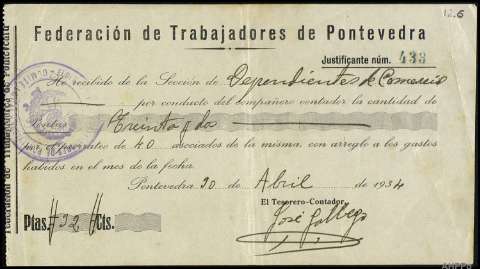 12.6
Federación de Trabajadores de Pontevedra
Justificante núm. 433
He recibido de la Sección de Dependientes de Comercio
por conducto del compañero contador la cantidad de
Pesetas Treinta y dos
por el importe de 40 asociados de la misma, con arreglo a los gastos
habidos en el mes de la fecha.
Pontevedra 30 de Abril de 1934
El Tesorero-Contador,
José Gallego
Ptas. #32# Cts.
Federación de Trabajadores de Pontevedra
AHPPo